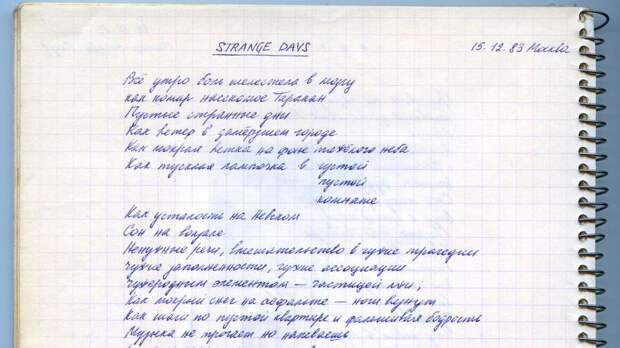 STRANGE DAYS 15.12.83 Москва
Всё утро боль шелестела в мозгу
как кошмар насекомое Таракан
Пустые странные дни
Как ветер в замёрзшем городе
Как мокрая ветка на фоне тяжёлого неба
Как тусклая лампочка в густой
пустой
комнате
Как усталость на Невском
Сон на вокзале
Ненужные речи, вмешательство в чужие трагедии
Чужие заполненности, чужие ассоциации
Чужеродным элементом — частицей лжи,
Как мокрый снег на асфальте — ноги вернут
Как шаги по пустой квартире и фальшивая бодрость
Музыка не прогонит но напеваешь